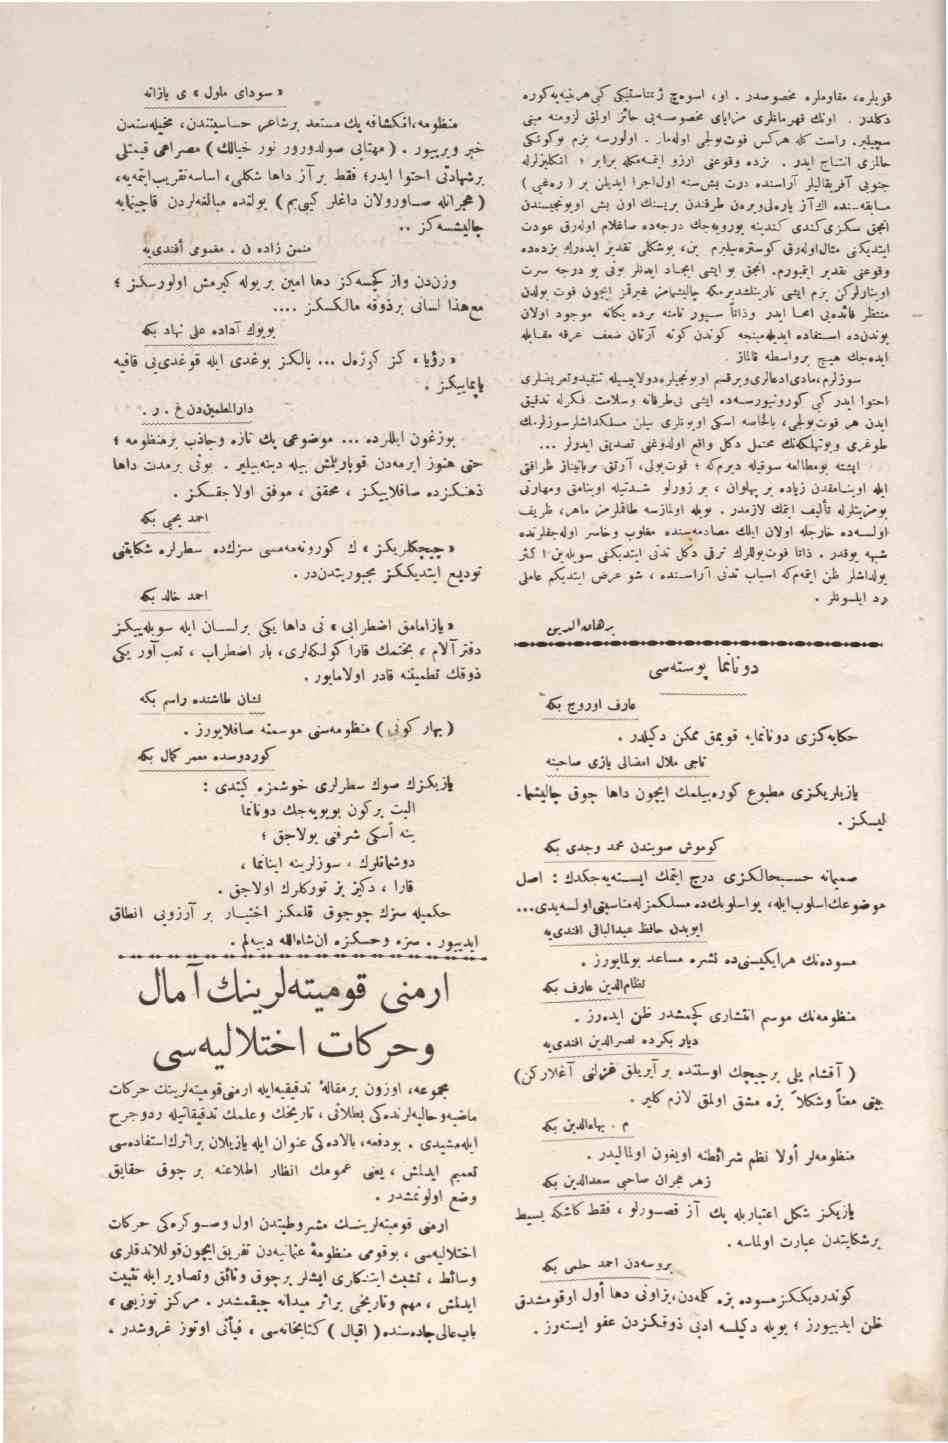 قويلره، مقاومله مخصوصدر . او، اسوه‌چ ژيمناستيكى كبى هر بنيه‌يه كوره
دكلدر . اونك قهرمانلرى مزاياى مخصوصه‌يى حائز اولمق لزومنه مبنى
سچيلير. راست كله هركس فوت‌بولجى اوله‌ماز . اولورسه بزم بوكونكى
حالمزى انتاج ايدر . بزده وقوعنى آرزو ايتمه‌مكله برابر ؛ انكليزلرله
جنوبى آفريقاليلر آراسنده درت بش سنه اول اجرا ايديلن بر ( ره‌غبى )
مسابقه‌سنده اك آز ياره‌لى ويره‌ن طرفندن بريسنك اون بش اويونجيسندن
انجق سكزى كندى كندينه يورويه‌جك درجه‌ده صاغلام اوله‌رق عودت
ايتديكنى مثال اوله‌رق كوستره‌بيليرم. بن، بوشكلى تقدير ايده‌رك بزده‌ده
وقوعنى تقدير ايتميورم. انجق بو ايشى ايجاد ايدنلر بونى بو درجه سرت
اوينارلركن بزم ايشى نازيكلشديرمكه چاليشمامز غيرقمز ايچون فوت بولدن
منتظر فائده‌يى امحا ايدر وذاتاً سپور نامنه برده يكانه موجود اولان
بوندن‌ده استفاده ايديله‌مينجه كوندن كونه آرتان ضعف عرقه مقابله
ايده‌جك هيچ برواسطه قالماز .
سوزلرم، مادى ادعالرى وبرقسم اويونجيلره دولاييسيله تنقيد وتعريضلرى
احتوا ايدر كبى كورونيورسه‌ده ايشى بى‌طرفانه وسلامت فكرله تدقيق
ايدن هر فوت‌بولجى، بالخاصه اسكى اويونلرى بيلن مسلكداشلر سوزلرمك
طوغرى وبوتهلكه‌نك محتمل دكل واقع اولدوغنى تصديق ايدرلر ...
ايشته بومطالعه سوقيله ديرم‌كه ؛ فوت‌بولى، آرتق برباتيناژ ظرافتى
ايله اوينامقدن زياده بر پهلوان ، بر زورلو شدتيله اوينامق ومهارتى
بومزيتلرله تأليف ايتمك لازمدر. بويله اولمازسه طاقملرمز ماهر، ظريف
اولسه‌ده خارجله اولان ايلك مصادمه‌سنده مغلوب وخاسر اوله‌جقلرنده
شبهه يوقدر . ذاتا فوت‌بوللرك ترقى دكل تدنى ايتديكنى سويله‌ين اكثر
يولداشلر ظن ايتمم‌كه اسباب تدنى آراسنده ، شو عرض ايتديكم عاملى
رد ايلسونلر .
برهان الدين
دونانما پوسته‌سى
عارف اوروج بكه
حكايه‌كزى دونانمايه قويمق ممكن دكيلدر .
ناجى ملال امضالى يازى صاحبنه
يازيلريكزى مطبوع كوره‌بيلمك ايچون داها چوق چاليشما-
ليسكز .
كوموش صويندن محمد وجدى بكه
صميمانه حسبحالكزى درج ايتمك ايسته‌يه‌جكدك : اصل
موضوعك اسلوب ايله، بو اسلوبك‌ده مسلكمزله مناسبتى اولسه‌يدى...
ايوبدن حافظ عبدالباقى افندى‌يه
مسوده‌نك هرايكيسنى‌ده نشره مساعد بولمايورز .
نظام‌الدين عارف بكه
منظومه‌نك موسم انتشارى كچمشدر ظن ايده‌رز .
ديار بكرده نصرالدين افندى‌يه
( آقشام يلى برچيچك اوستنده بر آيريلق غزلنى آغلاركن)
بيتى معناً وشكلاً بزه مشق اولمق لازم كلير .
م . بهاءالدين بكه
منظومه‌لر أولا نظم شرائطنه اويغون اولماليدر .
زهر هجران صاحبى سعدالدين بكه
يازيكز شكل اعتباريله پك آز قصورلو ، فقط كاشكه بسيط
برشكايتدن عبارت اولماسه .
بروسه‌دن احمد حلمى بكه
كوندرديككز مسوده بزه كلمه‌دن، بزاونى دها أول اوقومشدق
ظن ايدييورز ؛ بويله دكيلسه ادبى ذوقكزدن عفو ايسته‌رز .
« سوداى ملول » ى يازانه
منظومه، انكشافه پك مستعد برشاعر حساسيتندن، مخيله‌سندن
خبر ويرييور . ( مهتابى صولدورور نور خيالك ) مصراعى قيمتلى
برشهادتى احتوا ايدر؛ فقط برآز داها شكلى، اساسه تقريب ايتمه‌يه،
( هجرانله صاورولان داغلر كيبى‌يم ) يولنده مبالغه‌لردن قاچينمايه
چاليشسه‌كز ..
منسن زاده ن . مغمومى أفندى‌يه
وزن‌دن واز كچسه‌كز دها امين بريوله كيرمش اولورسكز ؛
مع‌هذا لسانى برذوقه مالكسكز ....
بويوك آداده على نهاد بكه
« رؤيا » كز كوزه‌ل ... يالكز بوغدى ايله قوغدى‌يى قافيه
ياپماييكز .
دارالمعلمين‌دن خ . ر .
بوزغون ايللرده ... موضوعى پك تازه وجاذب برمنظومه ؛
حتى هنوز ايرمه‌دن قوپاريلمش بيله دينه‌بيلير . بونى برمدت داها
ذهنكزده صاقلاييكز ، محقق ، موفق اولاجقسكز .
احمد يحيى بكه
« چيچكلريكز » ك كورونه‌مه‌مسى سزك‌ده سطرلره شكايتنى
توديع ايتديككز مجبوريتدن‌در .
احمد خالد بكه
« يازامامق اضطرابى » نى داها يكى برلسان ايله سويله‌ييكز
دفتر آلام ، بختمك قارا كولكه‌لرى، بار اضطراب ، تعب آور يكى
ذوقك تطمينه قادر اولامايور .
نشان طاشنده راسم بكه
( بهار كونى ) منظومه‌سنى موسمنه صاقلايورز .
كوردوسده معمر كمال بكه
يازيكزك صوك سطرلرى خوشمزه كيتدى :
البت بركون بويويه‌جك دونانما
ينه أسكى شرفنى بولاجق ؛
دوشمانلرك ، سوزلرينه اينانما ،
قارا ، دكيز بز توركلرك اولاجق .
حكميله سزك چوجوق قلمكز اختيار بر آرزويى انطاق
ايدييور . سزه وحسكزه ان‌شاءالله دييه‌لم .
ارمنى قوميته‌لرينك آمال
وحركات اختلاليه‌سى
مجموعه، اوزون برمقالهٔ تدقيقيه‌ايله ارمنى قوميته‌لرينك حركات
ماضيه وحاليه‌لرنده‌كى بطلانى ، تاريخك وعلمك تدقيقاتيله ردوجرح
ايله‌مشيدى . بودفعه، بالاده‌كى عنوان ايله يازيلان براثرك استفاده‌سى
تعميم ايدلمش ، يعنى عمومك انظار اطلاعنه بر چوق حقايق
وضع اولونمشدر .
ارمنى قوميته‌لرينك مشروطيتدن اول وصوكره‌كى حركات
اختلاليه‌سى ، بوقومى منظومهٔ عثمانيه‌دن تفريق ايچون قوللاندقلرى
وسائط ، تشبث ايتدكلرى ايشلر برچوق وثائق وتصاوير ايله تثبيت
ايدلمش ، مهم وتاريخى براثر ميدانه چيقمشدر . مركز توزيعى ،
باب‌عالى جاده‌سنده ( اقبال ) كتابخانه‌سى ، فيأتى اوتوز غروشدر .